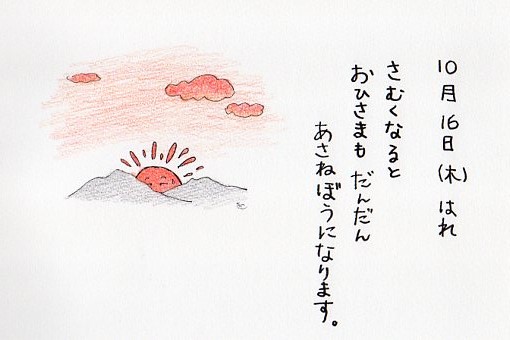 10月16日(木) はれ
さむくなると
おひさまも だんだん
あさねぼうになります。